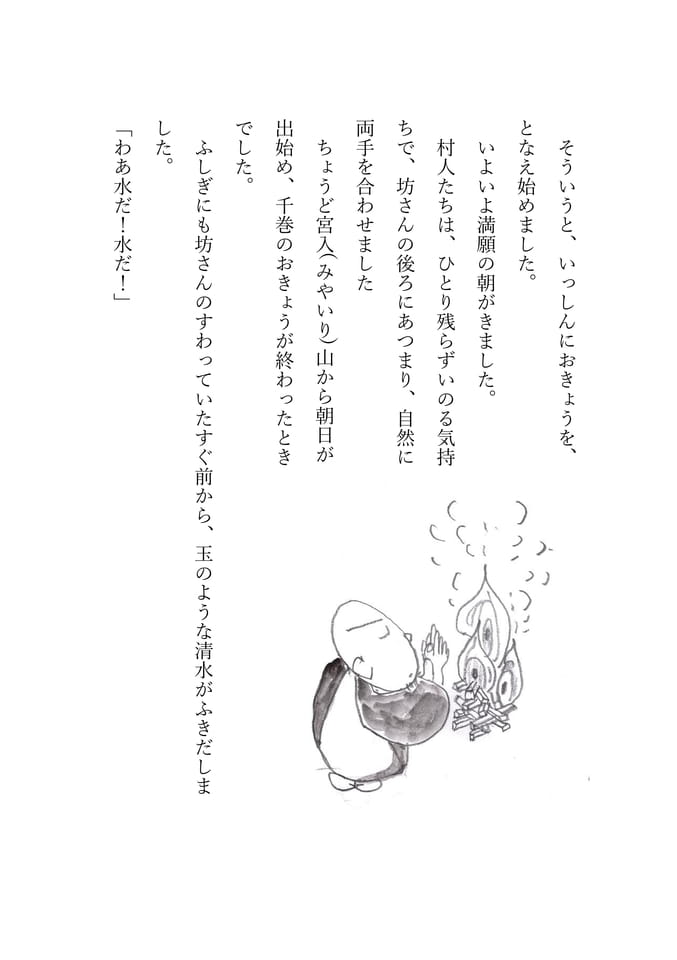 そういうと、いっしんにおきょうを、
となえ始めました。
いよいよ満願の朝がきました。
村人たちは、ひとり残らずいのる気持
ちで、坊さんの後ろにあつまり、自然に
両手を合わせました
ちょうど宮入(みやいり)山から朝日が
出始め、千巻のおきょうが終わったとき
でした。
ふしぎにも坊さんのすわっていたすぐ前から、玉のような清水がふきだしま
した。
「わあ水だ！水だ！」